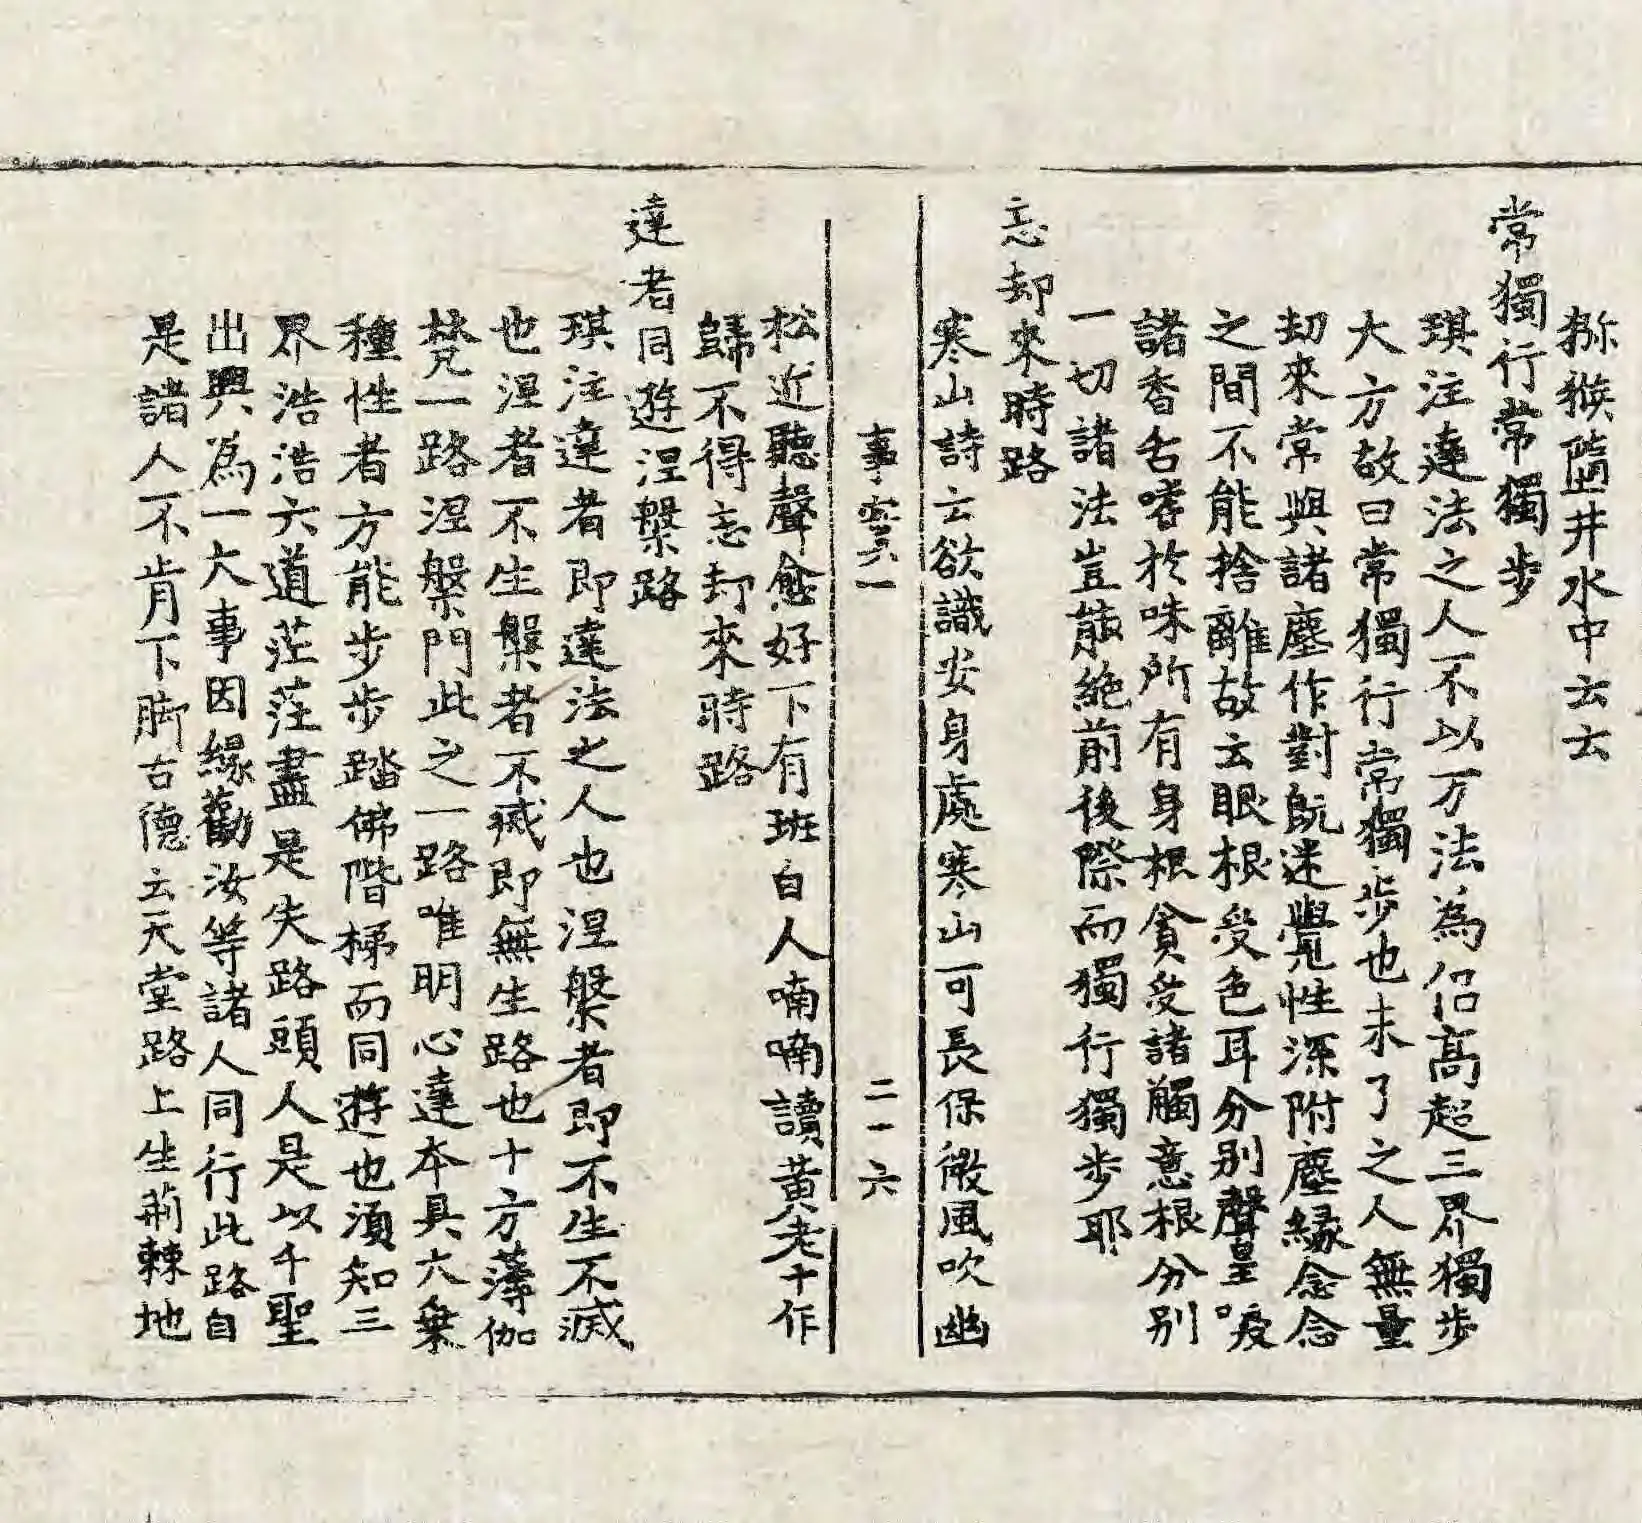 猕猴墮井水中云云
常獨行常獨步
琪注達法之人不以万法為侣高超三界獨步
大方故曰常獨行常獨步也未了之人無量
刧來常與諸塵作對既迷覺性深附塵緣念念
之間不能捨離故云眼根受色耳分别聲鼻嗅
諸香舌嗜於味所有身根貪受諸觸意根分别
一切諸法豈能絶前後際而獨行獨步耶
忘却來時路
寒山詩云欲識安身處寒山可長保微風吹幽
事寀六一 二一六
松近聽聲愈好下有班白人喃喃讀黄老十作
歸不得忘却來時路
達者同遊涅槃路
琪注達者即達法之人也涅槃者即不生不滅
也涅者不生槃者不滅即無生路也十方薄伽
梵一路涅槃門此之一路唯明心達本具大乗
種性者方能步步踏佛階梯而同遊也須知三
界浩浩六道茫茫盡是失路頭人是以千聖
出興為一大事因緣勸汝等諸人同行此路自
是諸人不肯下脚古德云天堂路上生荊棘地